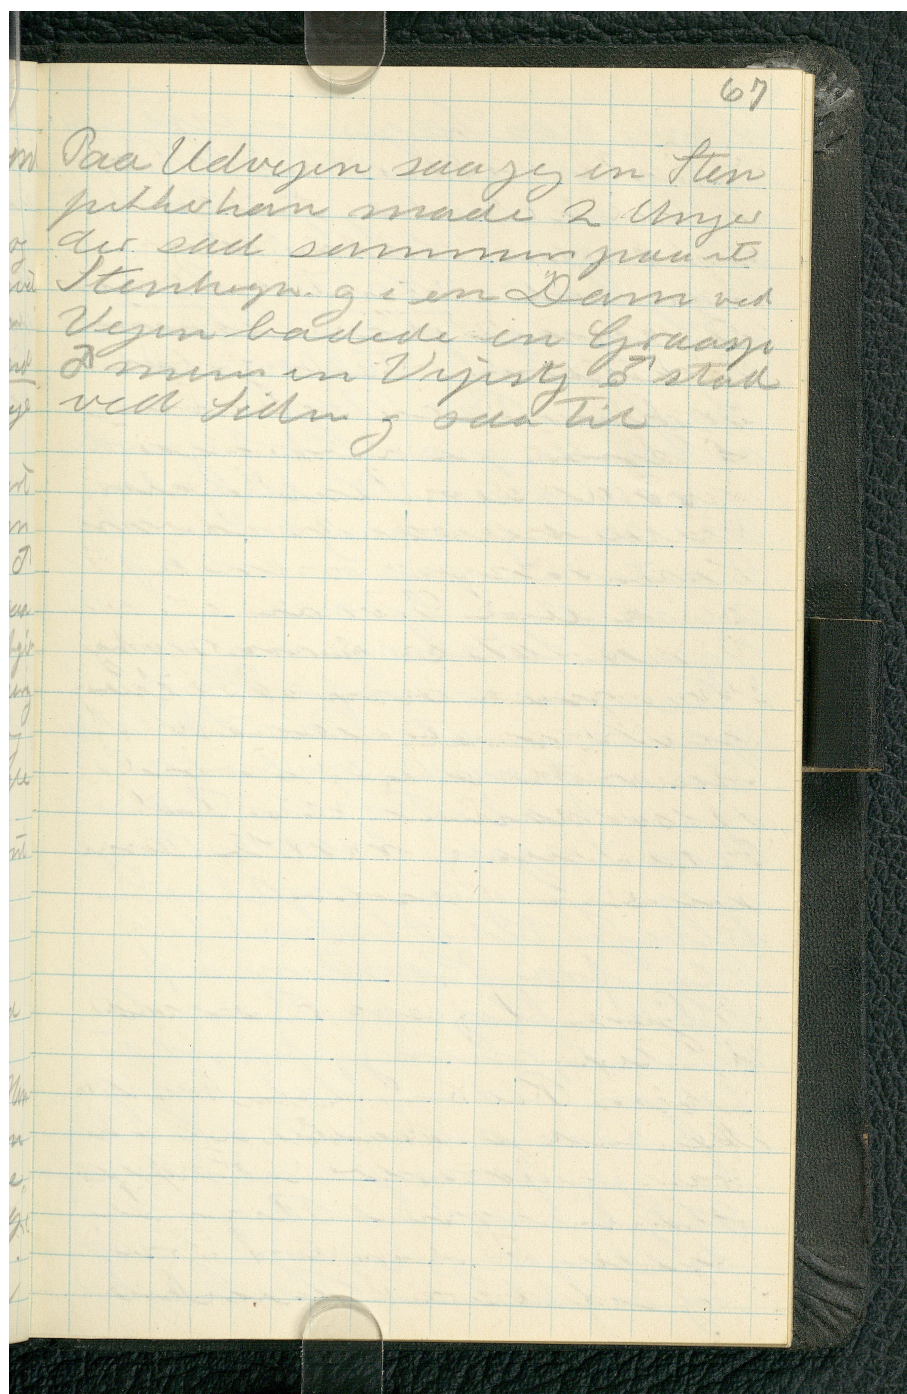 67
Paa Udvejen saa jeg en Sten
pikkerhan made 2 Unger
der sad sammen paa et
Stenhegn. og i en Dam ved
Vejen badede en Graasp.
♂ mens en Vipstj ♂ stod
ved Siden og saa til